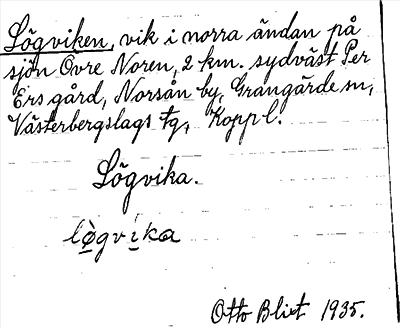 Lögviken, vik i norra ändan på
sjön Övre Noren, 2 km. sydväst Per
Ers gård, Norsån by, Grangärde sn,
Västerbergslags tg, Koppl.
Lögvika.
lògvika
Otto Blixt 1935.